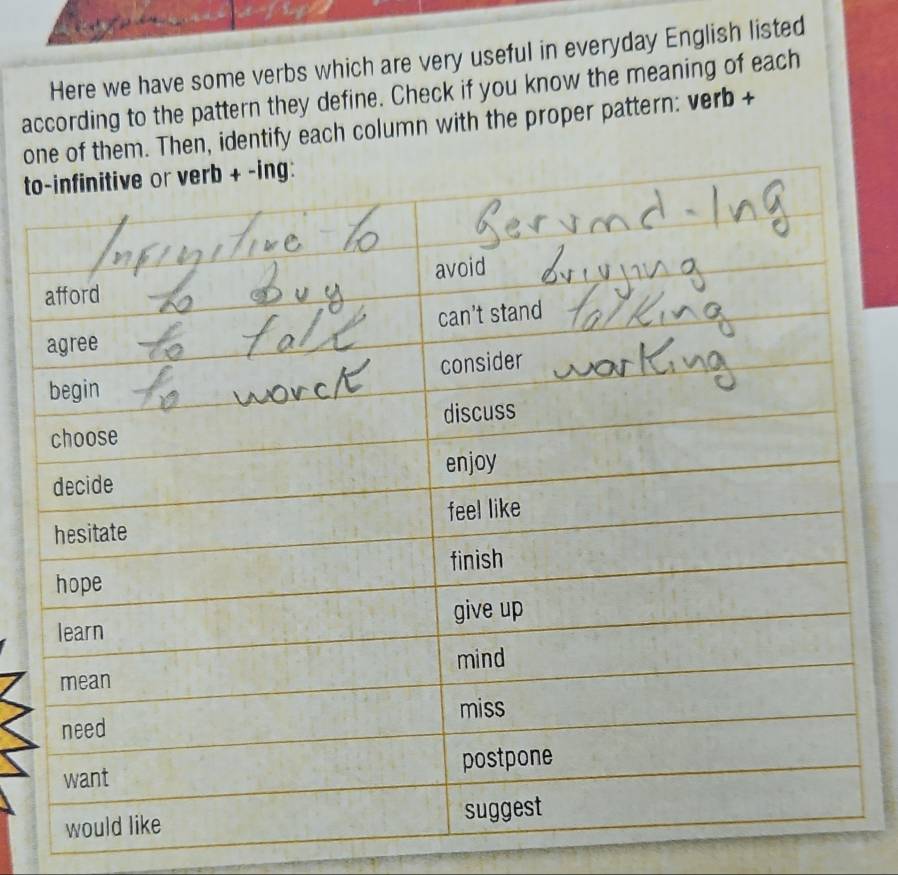 Here we have some verbs which are very useful in everyday English listed
according to the pattern they define. Check if you know the meaning of each
one of them. Then, identify each column with the proper pattern: verb +
to-infinitive or verb + -ing:
Infinitive - to Gerund - Ing
afford to buy avoid
agree to talk can't stand talking
begin to worck consider working
choose discuss
decide enjoy
hesitate feel like
hope finish
learn give up
mean mind
need miss
want postpone
would like suggest